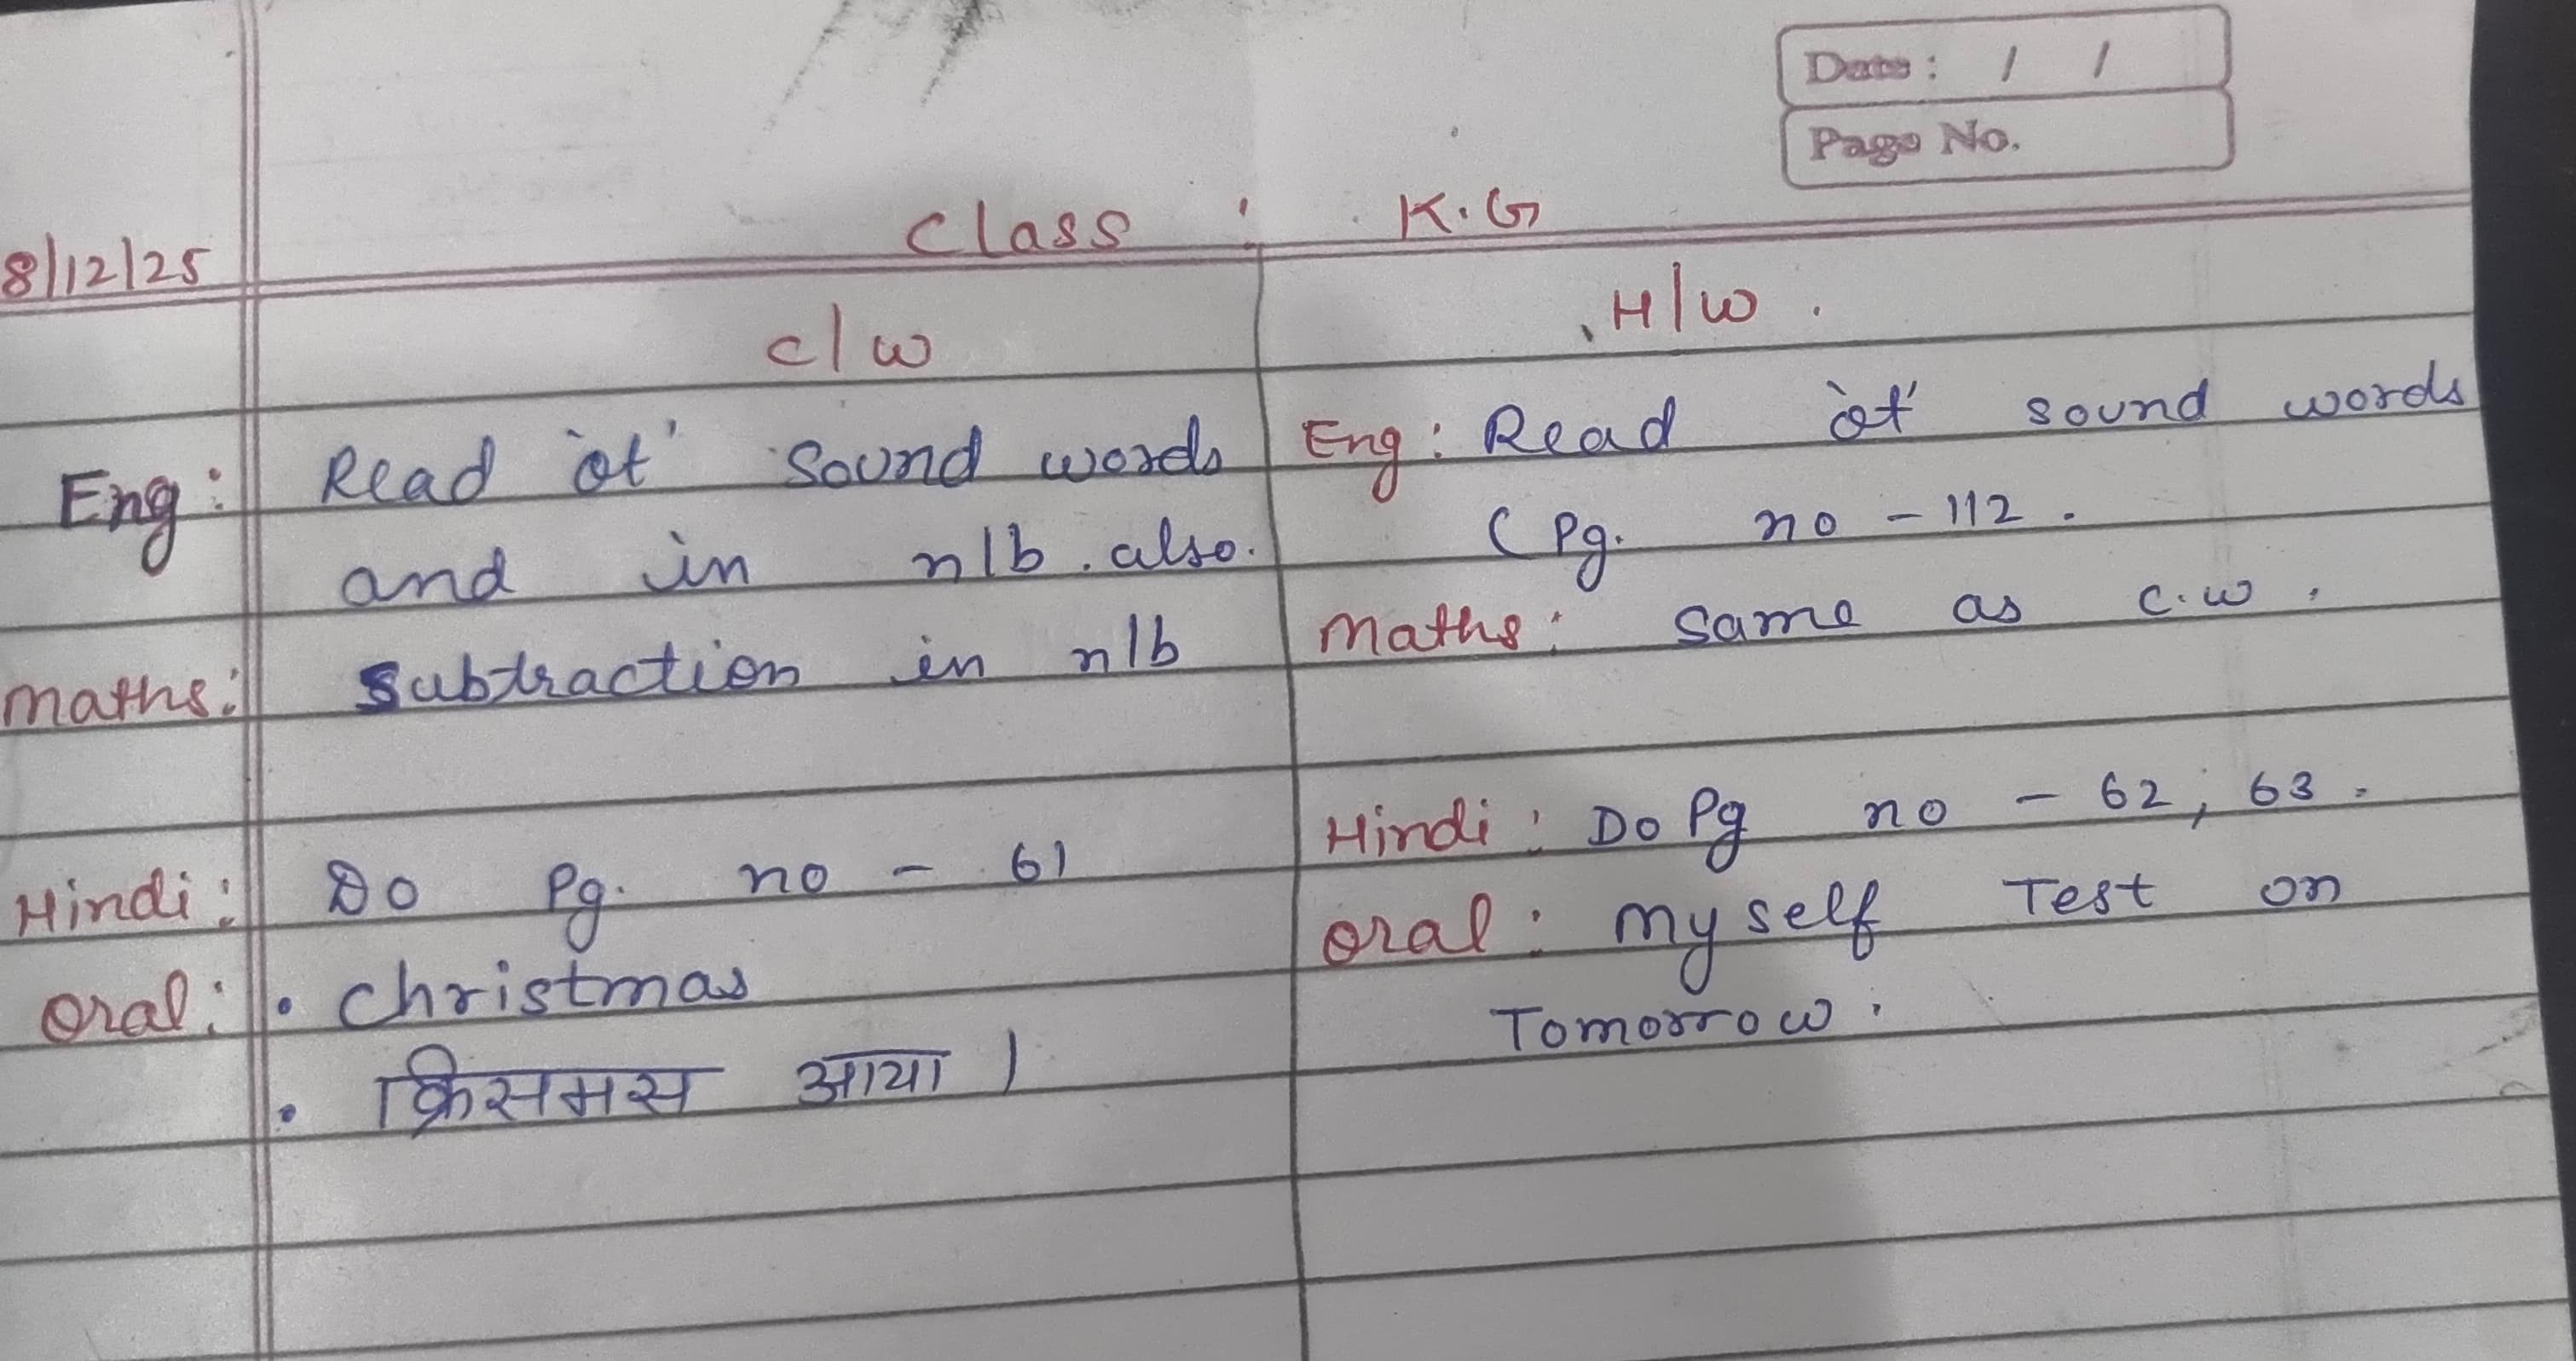 Date: / /
Page No.
Class : K.G
8/12/25
C/W
Eng: Read 'ot' sound words
and in n/b. also.
Maths: Subtraction in n/b
Hindi: Do Pg. no - 61
Oral: • Christmas
• क्रिसमस आया।
H/W.
Eng: Read 'ot' sound words
(Pg. no - 112.
Maths: Same as C.W.
Hindi: Do Pg no - 62, 63.
Oral: Myself Test on
Tomorrow.